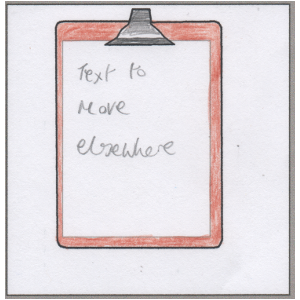 Text to
Move
elsewhere